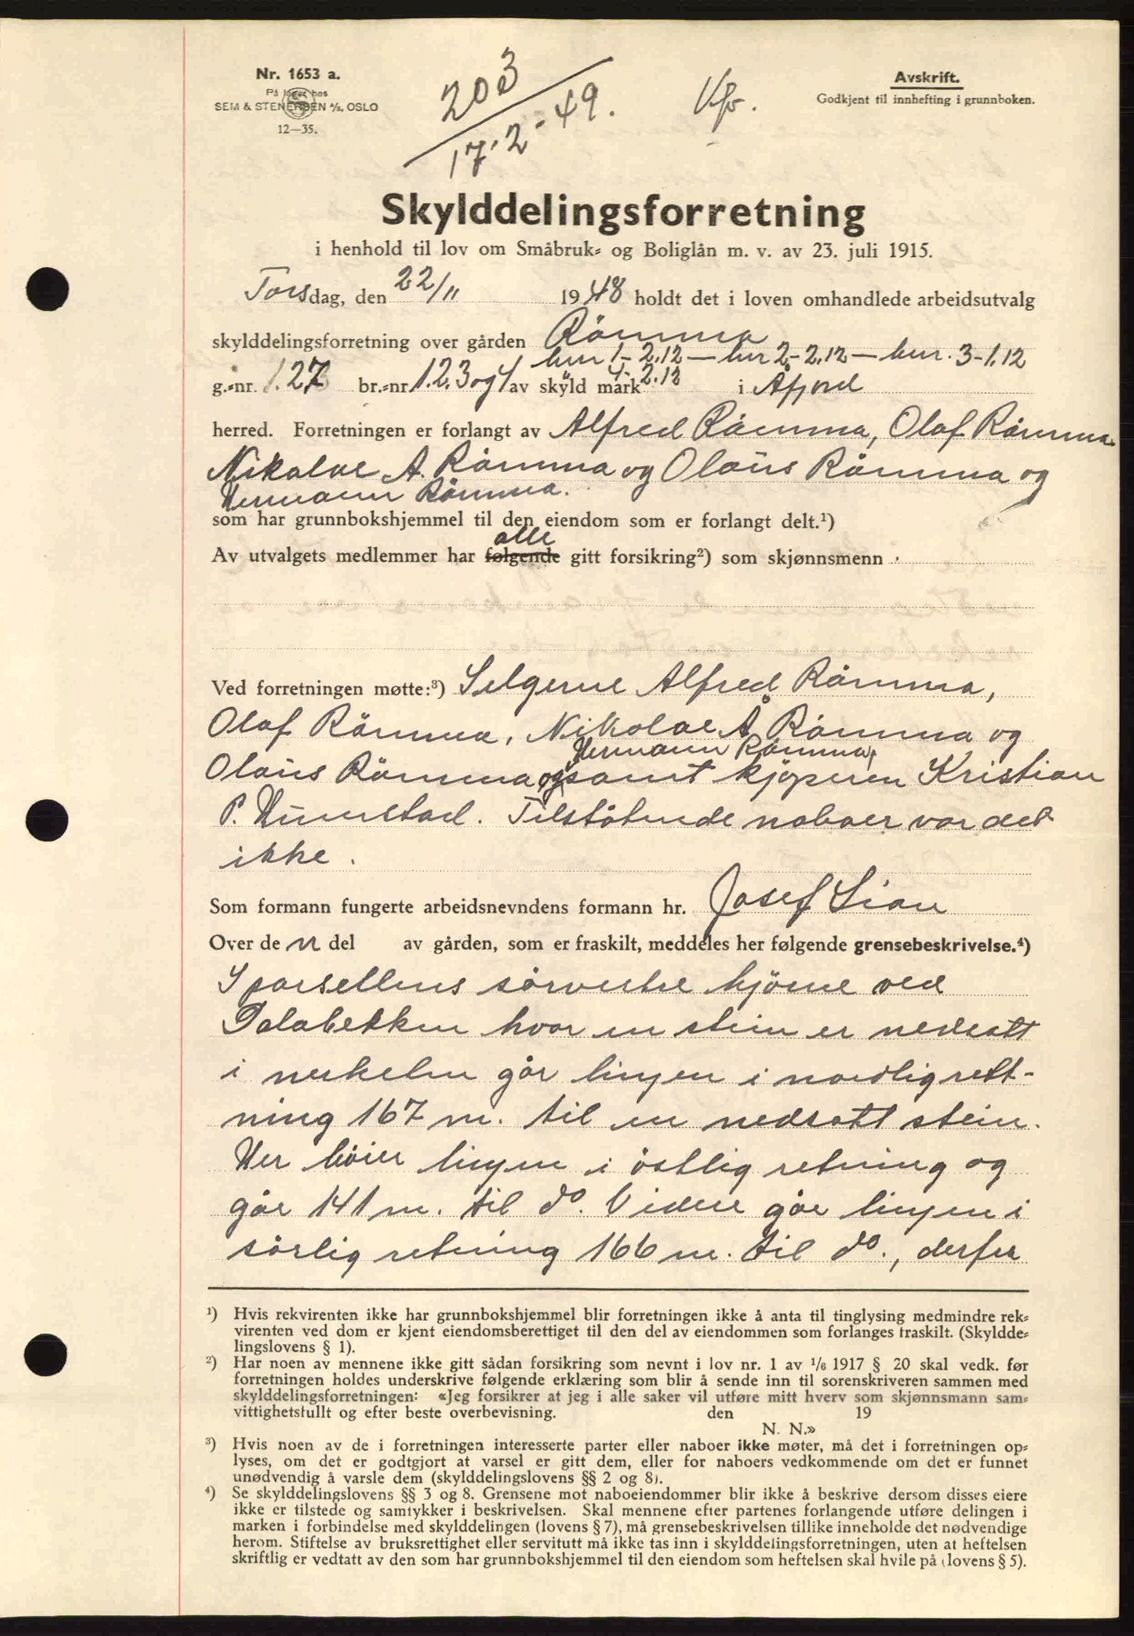 Nr. 1653 a.
På lager hos
SEM & STENERSEN A/S, OSLO
12—35.
203
17-2-49.
Avskrift.
Godkjent til innhefting i grunnboken.
Skylddelingsforretning
i henhold til lov om Småbruk- og Boliglån m. v. av 23. juli 1915.
Torsdag, den 22/11 1948 holdt det i loven omhandlede arbeidsutvalg
skylddelingsforretning over gården Råmma
bnr 1-2,12 — bnr 2-2,12 — bnr. 3-1,12
g.-nr. 127 br.-nr. 1.2,3 og 4 av skyld mark 4-2.12 i Åfjord
herred. Forretningen er forlangt av Alfred Råmma, Olaf Råmma
Nikolai A. Råmma og Olaus Råmma og
Hermann Råmma.
som har grunnbokshjemmel til den eiendom som er forlangt delt.¹)
alle
Av utvalgets medlemmer har følgende gitt forsikring²) som skjønnsmenn
Ved forretningen møtte:³) Selgerne Alfred Råmma,
Olaf Råmma, Nikolai A Råmma og
Hermann Råmma,
Olaus Råmma og samt kjøperen Kristian
P. Humstad. Tilstøtende naboer var det
ikke.
Som formann fungerte arbeidsnevndens formann hr. Josef Lian
Over de n del av gården, som er fraskilt, meddeles her følgende grensebeskrivelse.⁴)
I parsellens sørvestre hjørne ved
Dalabekken hvor en stein er nedsatt
i merkelin går linjen i nordlig rett-
ning 167 m. til en nedsatt stein.
Her bøier linjen i østlig retning og
går 141 m. til do. Videre går linjen i
sørlig retning 166 m. til do., derfra
¹) Hvis rekvirenten ikke har grunnbokshjemmel blir forretningen ikke å anta til tinglysing medmindre rek-
virenten ved dom er kjent eiendomsberettiget til den del av eiendommen som forlanges fraskilt. (Skyldde-
lingslovens § 1).
²) Har noen av mennene ikke gitt sådan forsikring som nevnt i lov nr. 1 av 1/6 1917 § 20 skal vedk. før
forretningen holdes underskrive følgende erklæring som blir å sende inn til sorenskriveren sammen med
skylddelingsforretningen: «Jeg forsikrer at jeg i alle saker vil utføre mitt hverv som skjønnsmann sam-
vittighetsfullt og efter beste overbevisning. den 19
N. N.»
³) Hvis noen av de i forretningen interesserte parter eller naboer ikke møter, må det i forretningen op-
lyses, om det er godtgjort at varsel er gitt dem, eller for naboers vedkommende om det er funnet
unødvendig å varsle dem (skylddelingslovens §§ 2 og 8).
⁴) Se skylddelingslovens §§ 3 og 8. Grensene mot naboeiendommer blir ikke å beskrive dersom disses eiere
ikke er tilstede og samtykker i beskrivelsen. Skal mennene efter partenes forlangende utføre delingen i
marken i forbindelse med skylddelingen (lovens § 7), må grensebeskrivelsen tillike inneholde det nødvendige
herom. Stiftelse av bruksrettighet eller servitutt må ikke tas inn i skylddelingsforretningen, uten at heftelsen
skriftlig er vedtatt av den som har grunnbokshjemmel til den eiendom som heftelsen skal hvile på (lovens § 5).